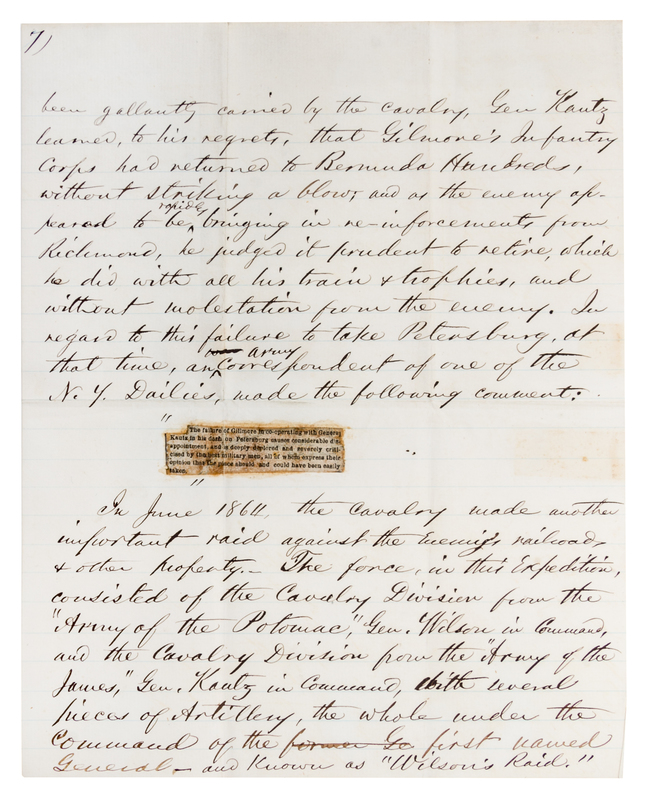 7)
been gallantly carried by the cavalry, Gen Kautz
learned, to his regrets, that Gilmore's Infantry
Corps had returned to Bermuda Hundreds,
without striking a blow; and as the enemy ap-
peared to be rapidly bringing in re-inforcements from
Richmond, he judged it prudent to retire, which
he did with all his train & trophies, and
without molestation from the enemy. In
regard to this failure to take Petersburg, at
that time, an Army Correspondent of one of the
N. Y. Dailies, made the following comment:
"
The failure of Gillmore in co-operating with General
Kautz in his dash on Petersburg causes considerable dis-
appointment, and is deeply deplored and severely criti-
cised by the best military men, all of whom express their
opinion that the place should and could have been easily
taken.
"
In June 1864, the Cavalry made another
important raid against the Enemy's railroads
& other property.— The force, in this Expedition,
consisted of the Cavalry Division from the
"Army of the Potomac," Gen. Wilson in Command,
and the Cavalry Division from the "Army of the
James," Gen. Kautz in Command, with several
pieces of Artillery, the whole under the
Command of the former Ge first named
General — and known as "Wilson's Raid."